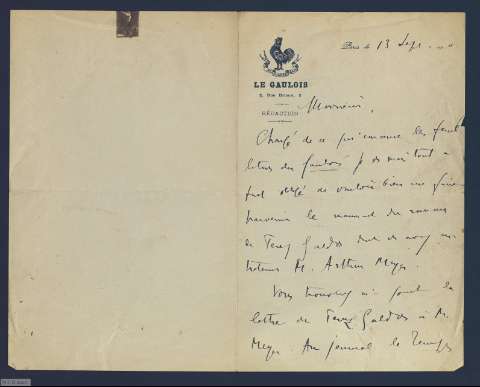 LE GAULOIS
2, Rue Drouot, 2
RÉDACTION
Paris le 13 Sept.
Monsieur,
Chargé de ce qui concerne les feuil
letons du Gaulois je vous
obligé de vouloir bien me faire
parvenir le du roman
de Perez Galdos dont
M. Arthur Meyer.
Vous trouverez ci-joint la
lettre de Perez Galdos à M.
Meyer. Au journal le Temps